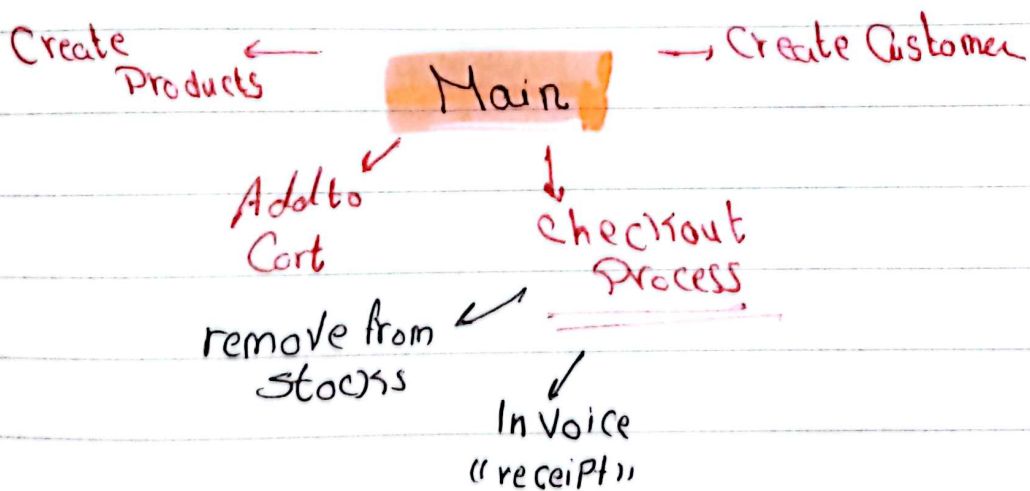 Create
Products
Main
Create Customer
Add to
Cart
checkout
Process
remove from
stocks
Invoice
"receipt"